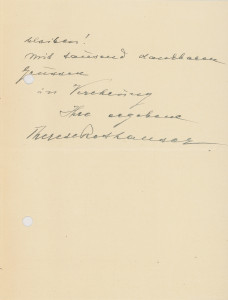 bleiben!
Mit tausend dankbaren
Grüssen
in Verehrung
Ihre ergebene
Therese Rothauser